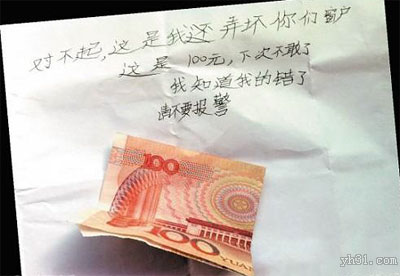 对不起，这是我还弄坏你们窗户
这是100元，下次不敢了
我知道我的错了
请不要报警
100
100
YUAN
yh31.com